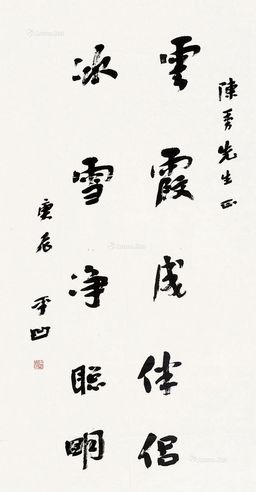 陳秀先生正
雲霞成伴侶
冰雪净聪明
庚辰
平凹